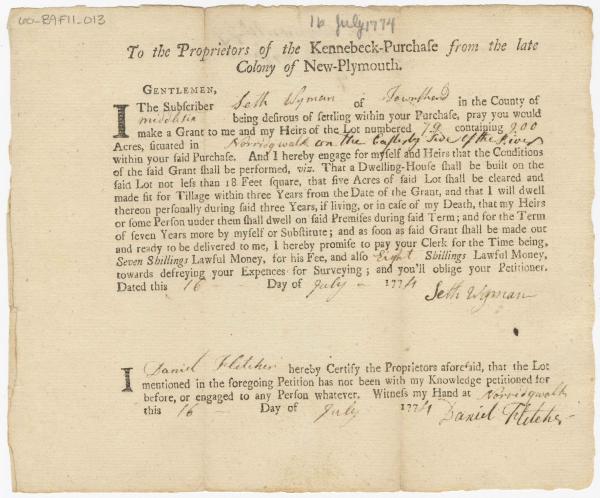 60-BAF11_013
16 July 1774
To the Proprietors of the Kennebeck-Purchase from the late
Colony of New-Plymouth.
GENTLEMEN,
I The Subscriber Seth Wyman of Townshend in the County of
middlesex being desirous of settling within your Purchase, pray you would
make a Grant to me and my Heirs of the Lot numbered 79 containing 200
Acres, situated in Norridgwalk on the Easterly Side of the River
within your said Purchase. And I hereby engage for myself and Heirs that the Conditions
of the said Grant shall be performed, viz. That a Dwelling-House shall be built on the
said Lot not less than 18 Feet square, that five Acres of said Lot shall be cleared and
made fit for Tillage within three Years from the Date of the Grant, and that I will dwell
thereon personally during said three Years, if living, or in case of my Death, that my Heirs
or some Person under them shall dwell on said Premises during said Term; and for the Term
of seven Years more by myself or Substitute; and as soon as said Grant shall be made out
and ready to be delivered to me, I hereby promise to pay your Clerk for the Time being,
Seven Shillings Lawful Money, for his Fee, and also Eight Shillings Lawful Money,
towards defreying your Expences for Surveying; and you'll oblige your Petitioner.
Dated this 16 Day of July 1774
Seth Wyman
I Daniel Fletcher hereby Certify the Proprietors aforesaid, that the Lot
mentioned in the foregoing Petition has not been with my Knowledge petitioned for
before, or engaged to any Person whatever. Witness my Hand at Norridgwalk
this 16 Day of July 1774
Daniel Fletcher